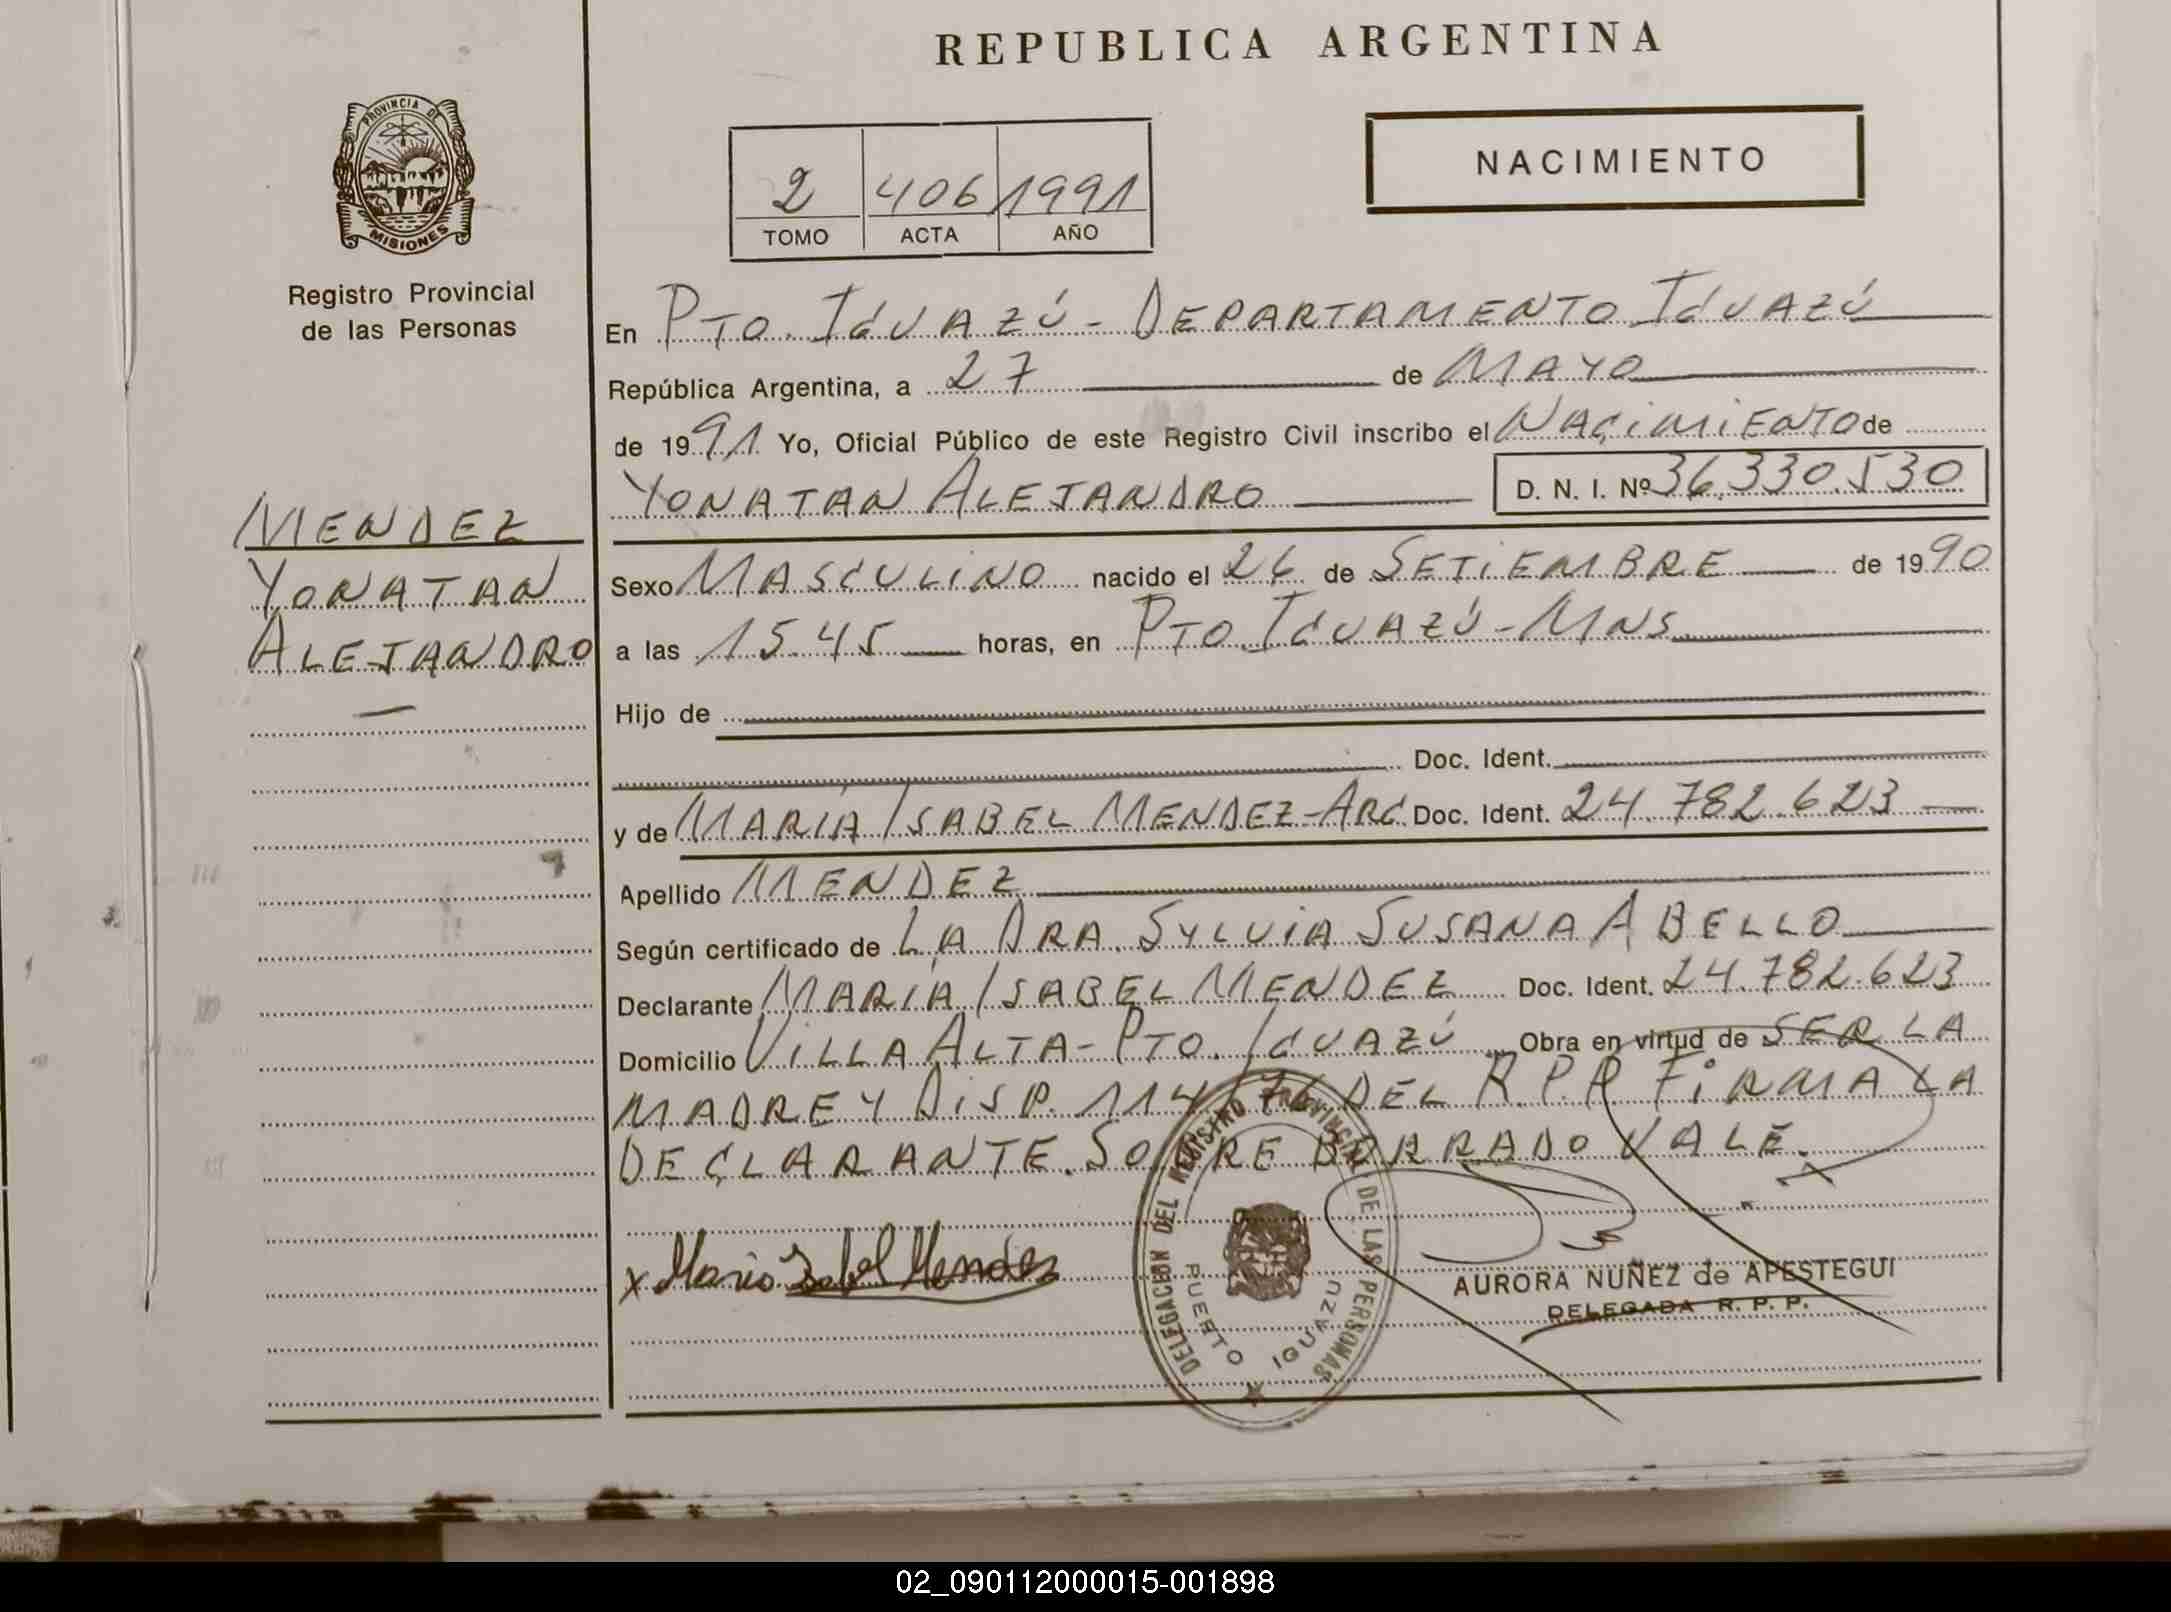 REPUBLICA ARGENTINA
PROVINCIA DE
MISIONES
Registro Provincial
de las Personas
MENDEZ
YONATAN
ALEJANDRO
2 406 1991
TOMO ACTA AÑO
NACIMIENTO
En PTO. IGUAZÚ - DEPARTAMENTO IGUAZÚ
República Argentina, a 27 de MAYO
de 1991 Yo, Oficial Público de este Registro Civil inscribo el NACIMIENTO de
YONATAN ALEJANDRO D. N. I. Nº 36.330.530
Sexo MASCULINO nacido el 26 de SETIEMBRE de 1990
a las 15.45 horas, en PTO IGUAZÚ - MNS
Hijo de
Doc. Ident.
y de MARÍA ISABEL MENDEZ - ARG Doc. Ident. 24.782.623
Apellido MENDEZ
Según certificado de LA DRA. SYLVIA SUSANA ABELLO
Declarante MARÍA ISABEL MENDEZ Doc. Ident. 24.782.623
Domicilio VILLA ALTA - PTO. IGUAZÚ Obra en virtud de SER LA
MADRE Y DISP. 114/76 DEL R.P.P. FIRMA LA
DECLARANTE. SOBRE BORRADO VALE.
x Maria Isabel Mendez
DELEGACION DEL REGISTRO PROVINCIAL DE LAS PERSONAS
PUERTO IGUAZU
AURORA NUÑEZ de APESTEGUI
DELEGADA R. P. P.
02_090112000015-001898